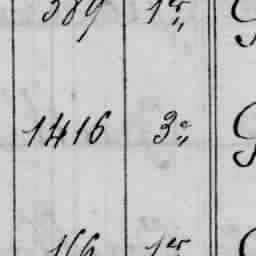 389 1er
1416 3e
166 1er